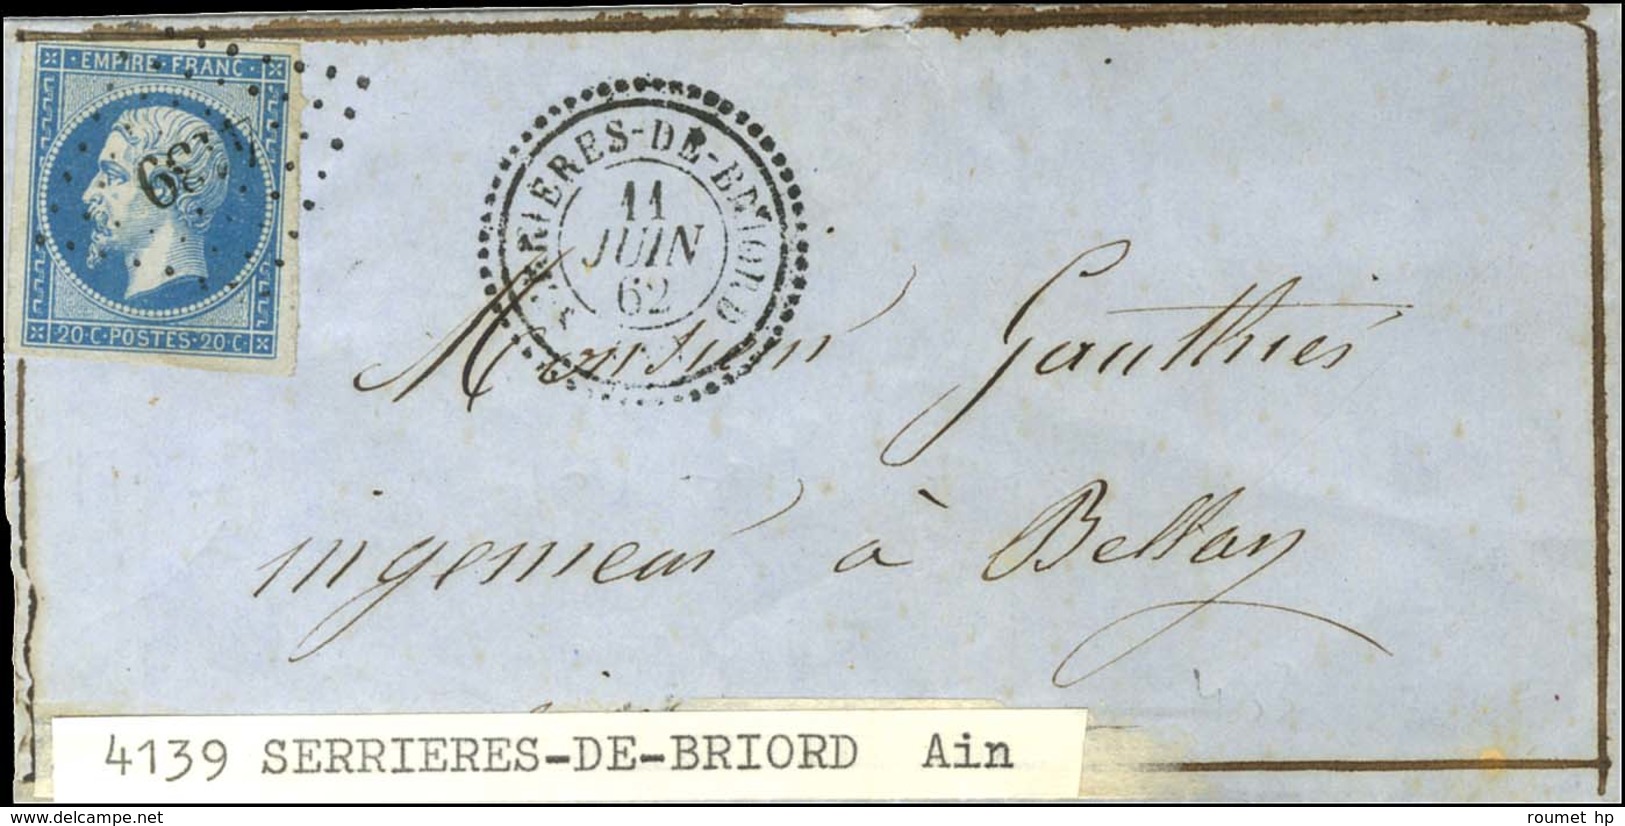 EMPIRE FRANC
4139
20·C·POSTES·20·C·
SERRIERES-DE-BRIORD
11
JUIN
62
Monsieur Gauthier
ingenieur à Bellay
4139 SERRIERES-DE-BRIORD Ain
roumet hp